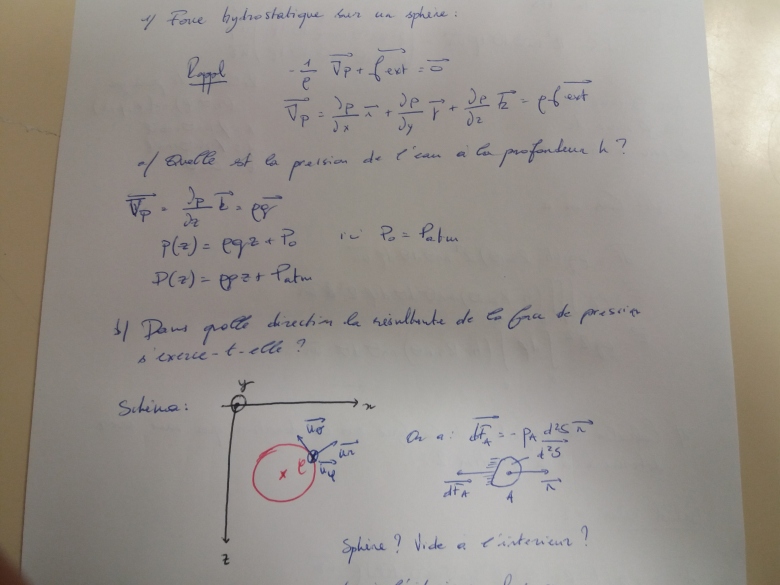 1/ Force hydrostatique sur un sphère :
Rappel -1/ρ ∇p + f ext = 0
∇p = ∂p/∂x i + ∂p/∂y j + ∂p/∂z k = ρ f ext
a/ Quelle est la pression de l'eau à la profondeur h ?
∇p = ∂p/∂z k = ρg
p(z) = ρgz + P0 ici P0 = Patm
P(z) = ρgz + Patm
b/ Dans quelle direction la résultante de la force de pression
s'exerce-t-elle ?
Schéma :
y
x
uθ
ur
uφ
z
On a : dFA = -PA d²S n
d²S
dFA
A
n
Sphère ? Vide à l'intérieur ?